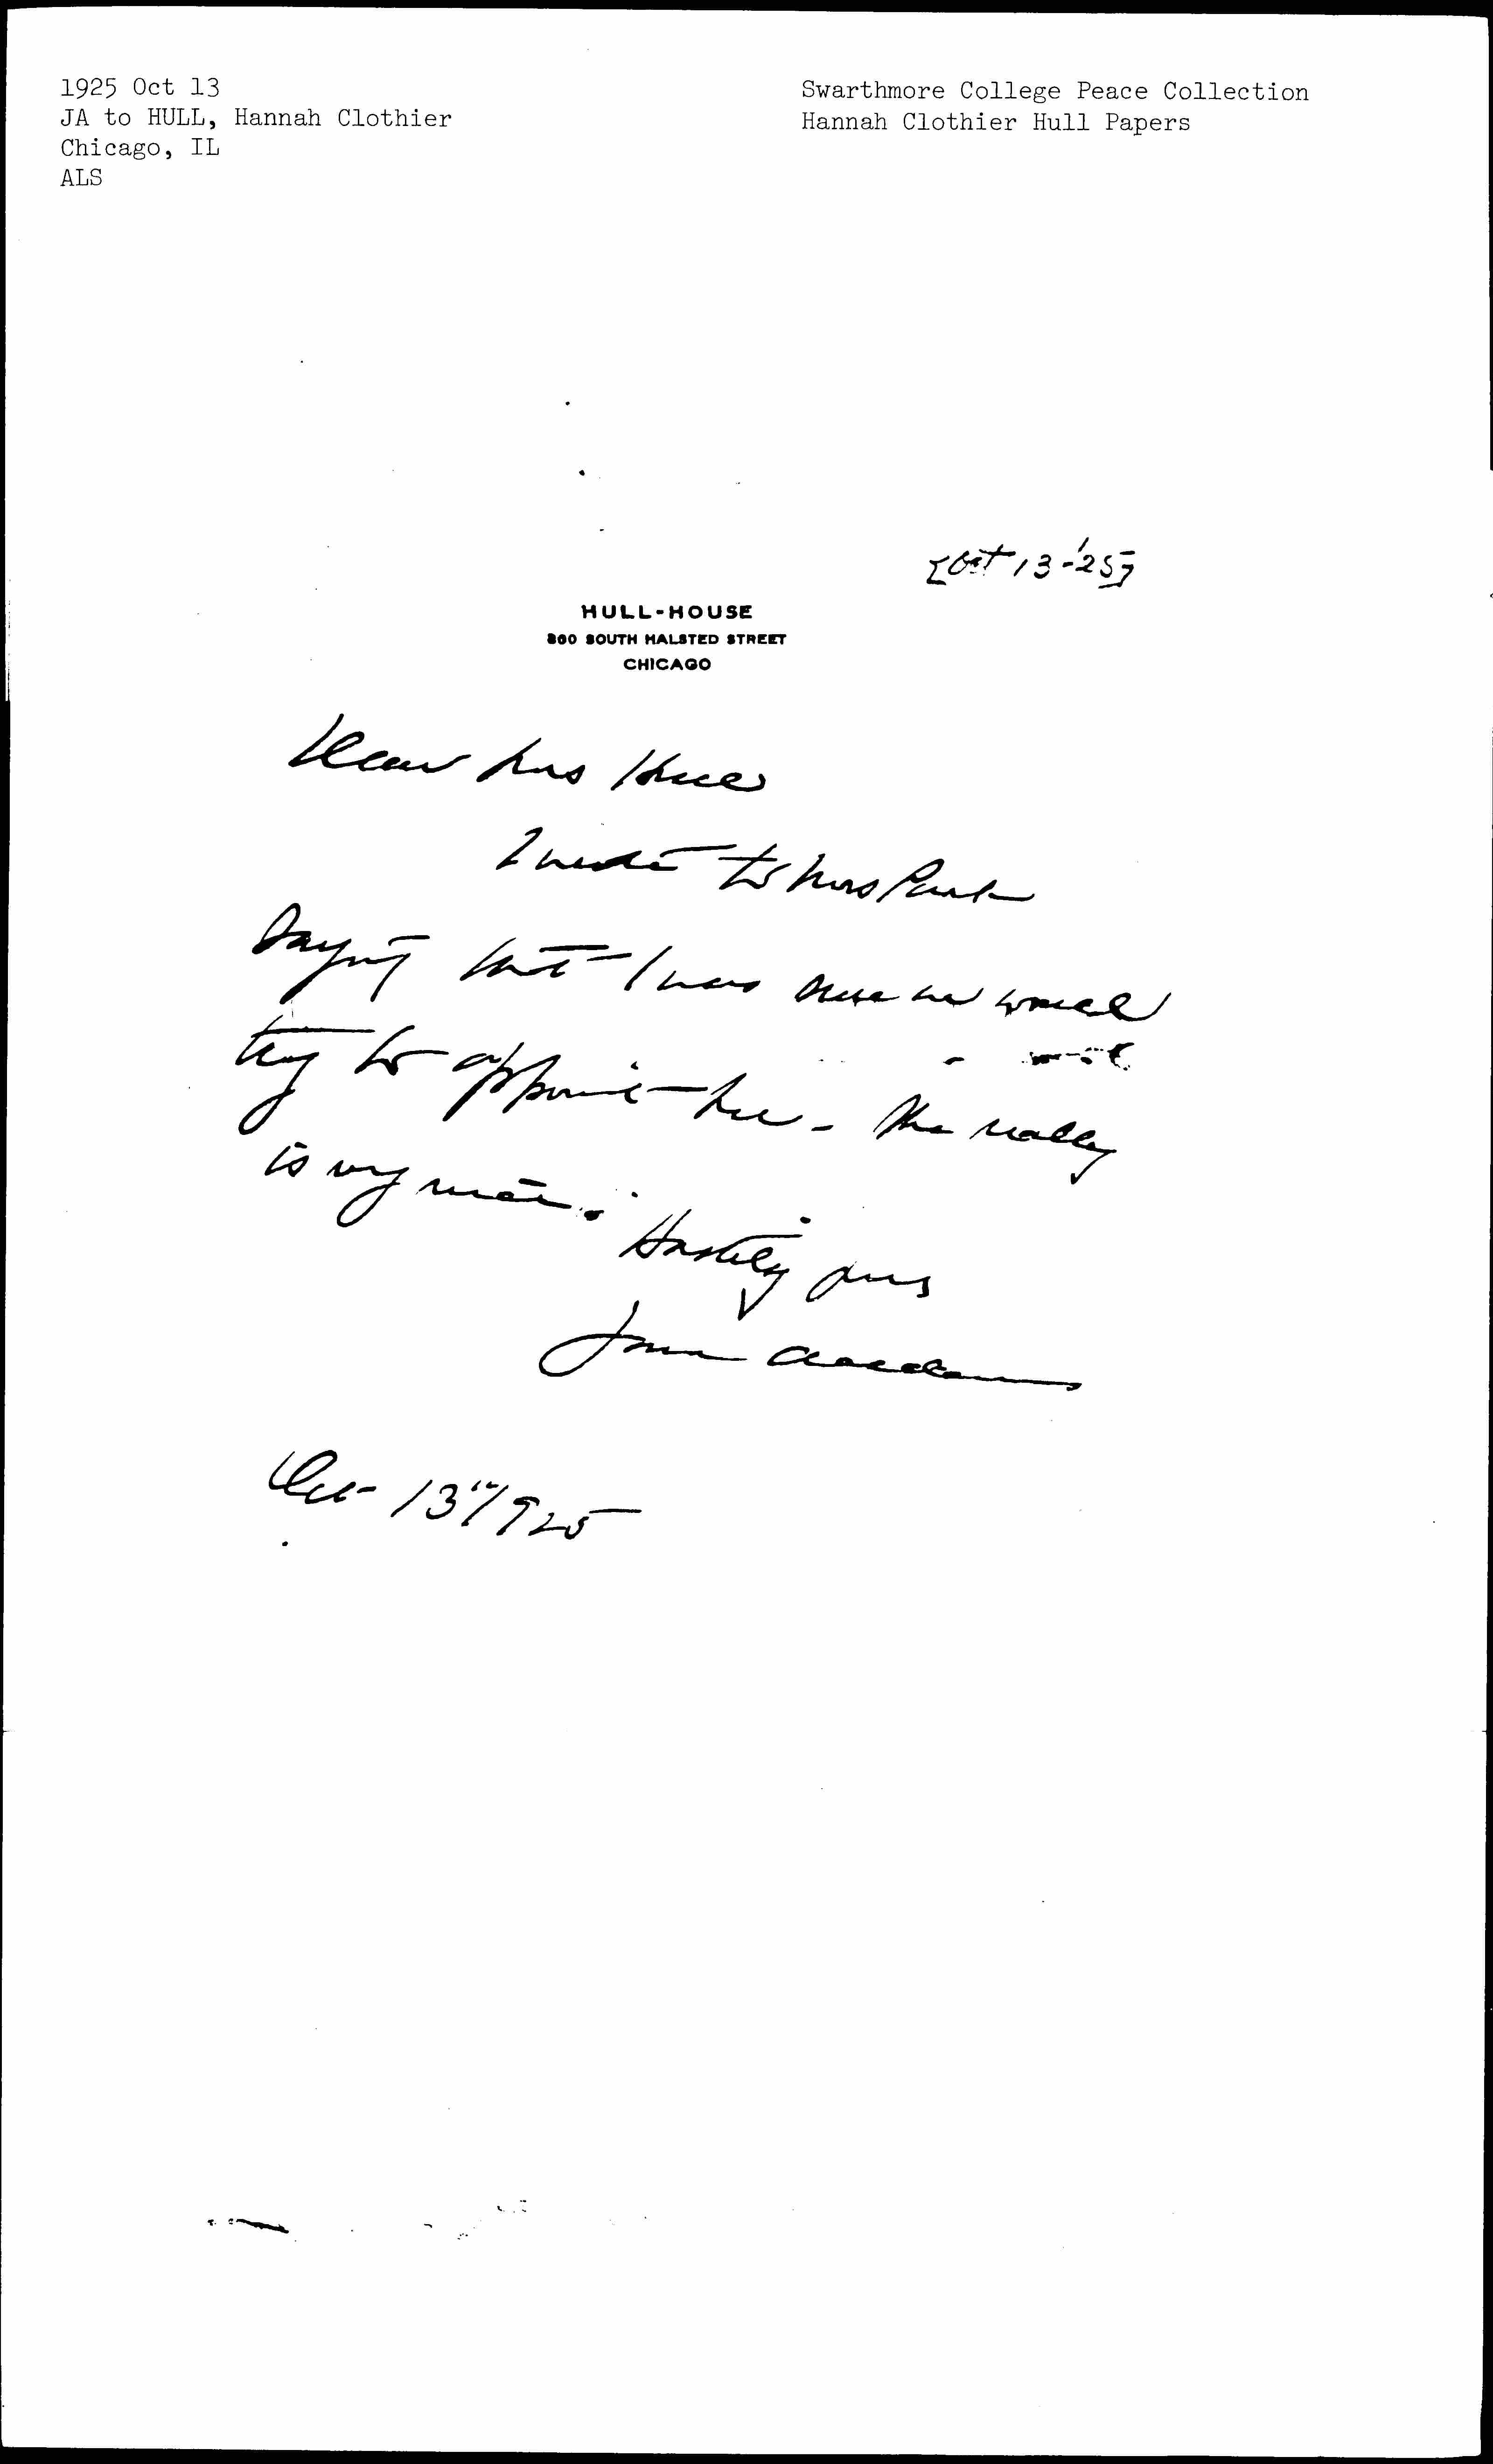 1925 Oct 13
JA to HULL, Hannah Clothier
Chicago, IL
ALS
Swarthmore College Peace Collection
Hannah Clothier Hull Papers
[Oct 13-'25]
HULL-HOUSE
800 SOUTH HALSTED STREET
CHICAGO
Dear Mrs Hull
I wrote to Mrs Park
saying that I was sure we would
try to appoint her - She really
is very
Hastily yours
Jane Addams
Oct 13" 1925